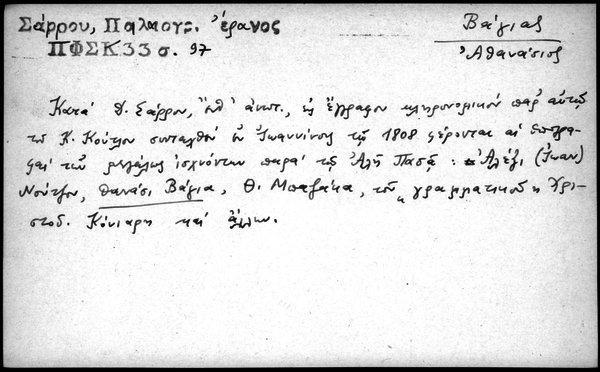 Σάρρου, Παλαιογρ. Έρανος
ΠΦΣΚ33 σ. 97
Βάγιας
Ἀθανάσιος
Κατά Δ. Σάρρον, ἔνθ' ἀνωτ., εἰς ἔγγραφον κληρονομικόν παρ' αὐτῷ
τοῦ Κ. Κούρτου συνταχθέν ἐν Ἰωαννίνοις τῷ 1808 φέρονται αἱ ὑπογρα-
φαί τῶν μεγάλως ἰσχυόντων παρά τῷ Ἀλῆ Πασᾷ : Ἀλέξι (Ἰωαν)
Νούτζου, Θανάσι Βάγια, Θ. Μπαβάκα, τοῦ γραμματικοῦ Χρι-
στοδ. Κόνιαρη καί ἄλλων.